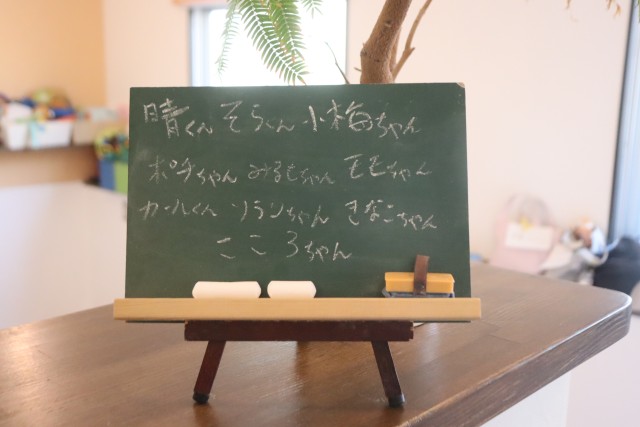 晴くん そらくん 小梅ちゃん
ポチちゃん みるもちゃん モモちゃん
カールくん ソランちゃん きなこちゃん
こころちゃん